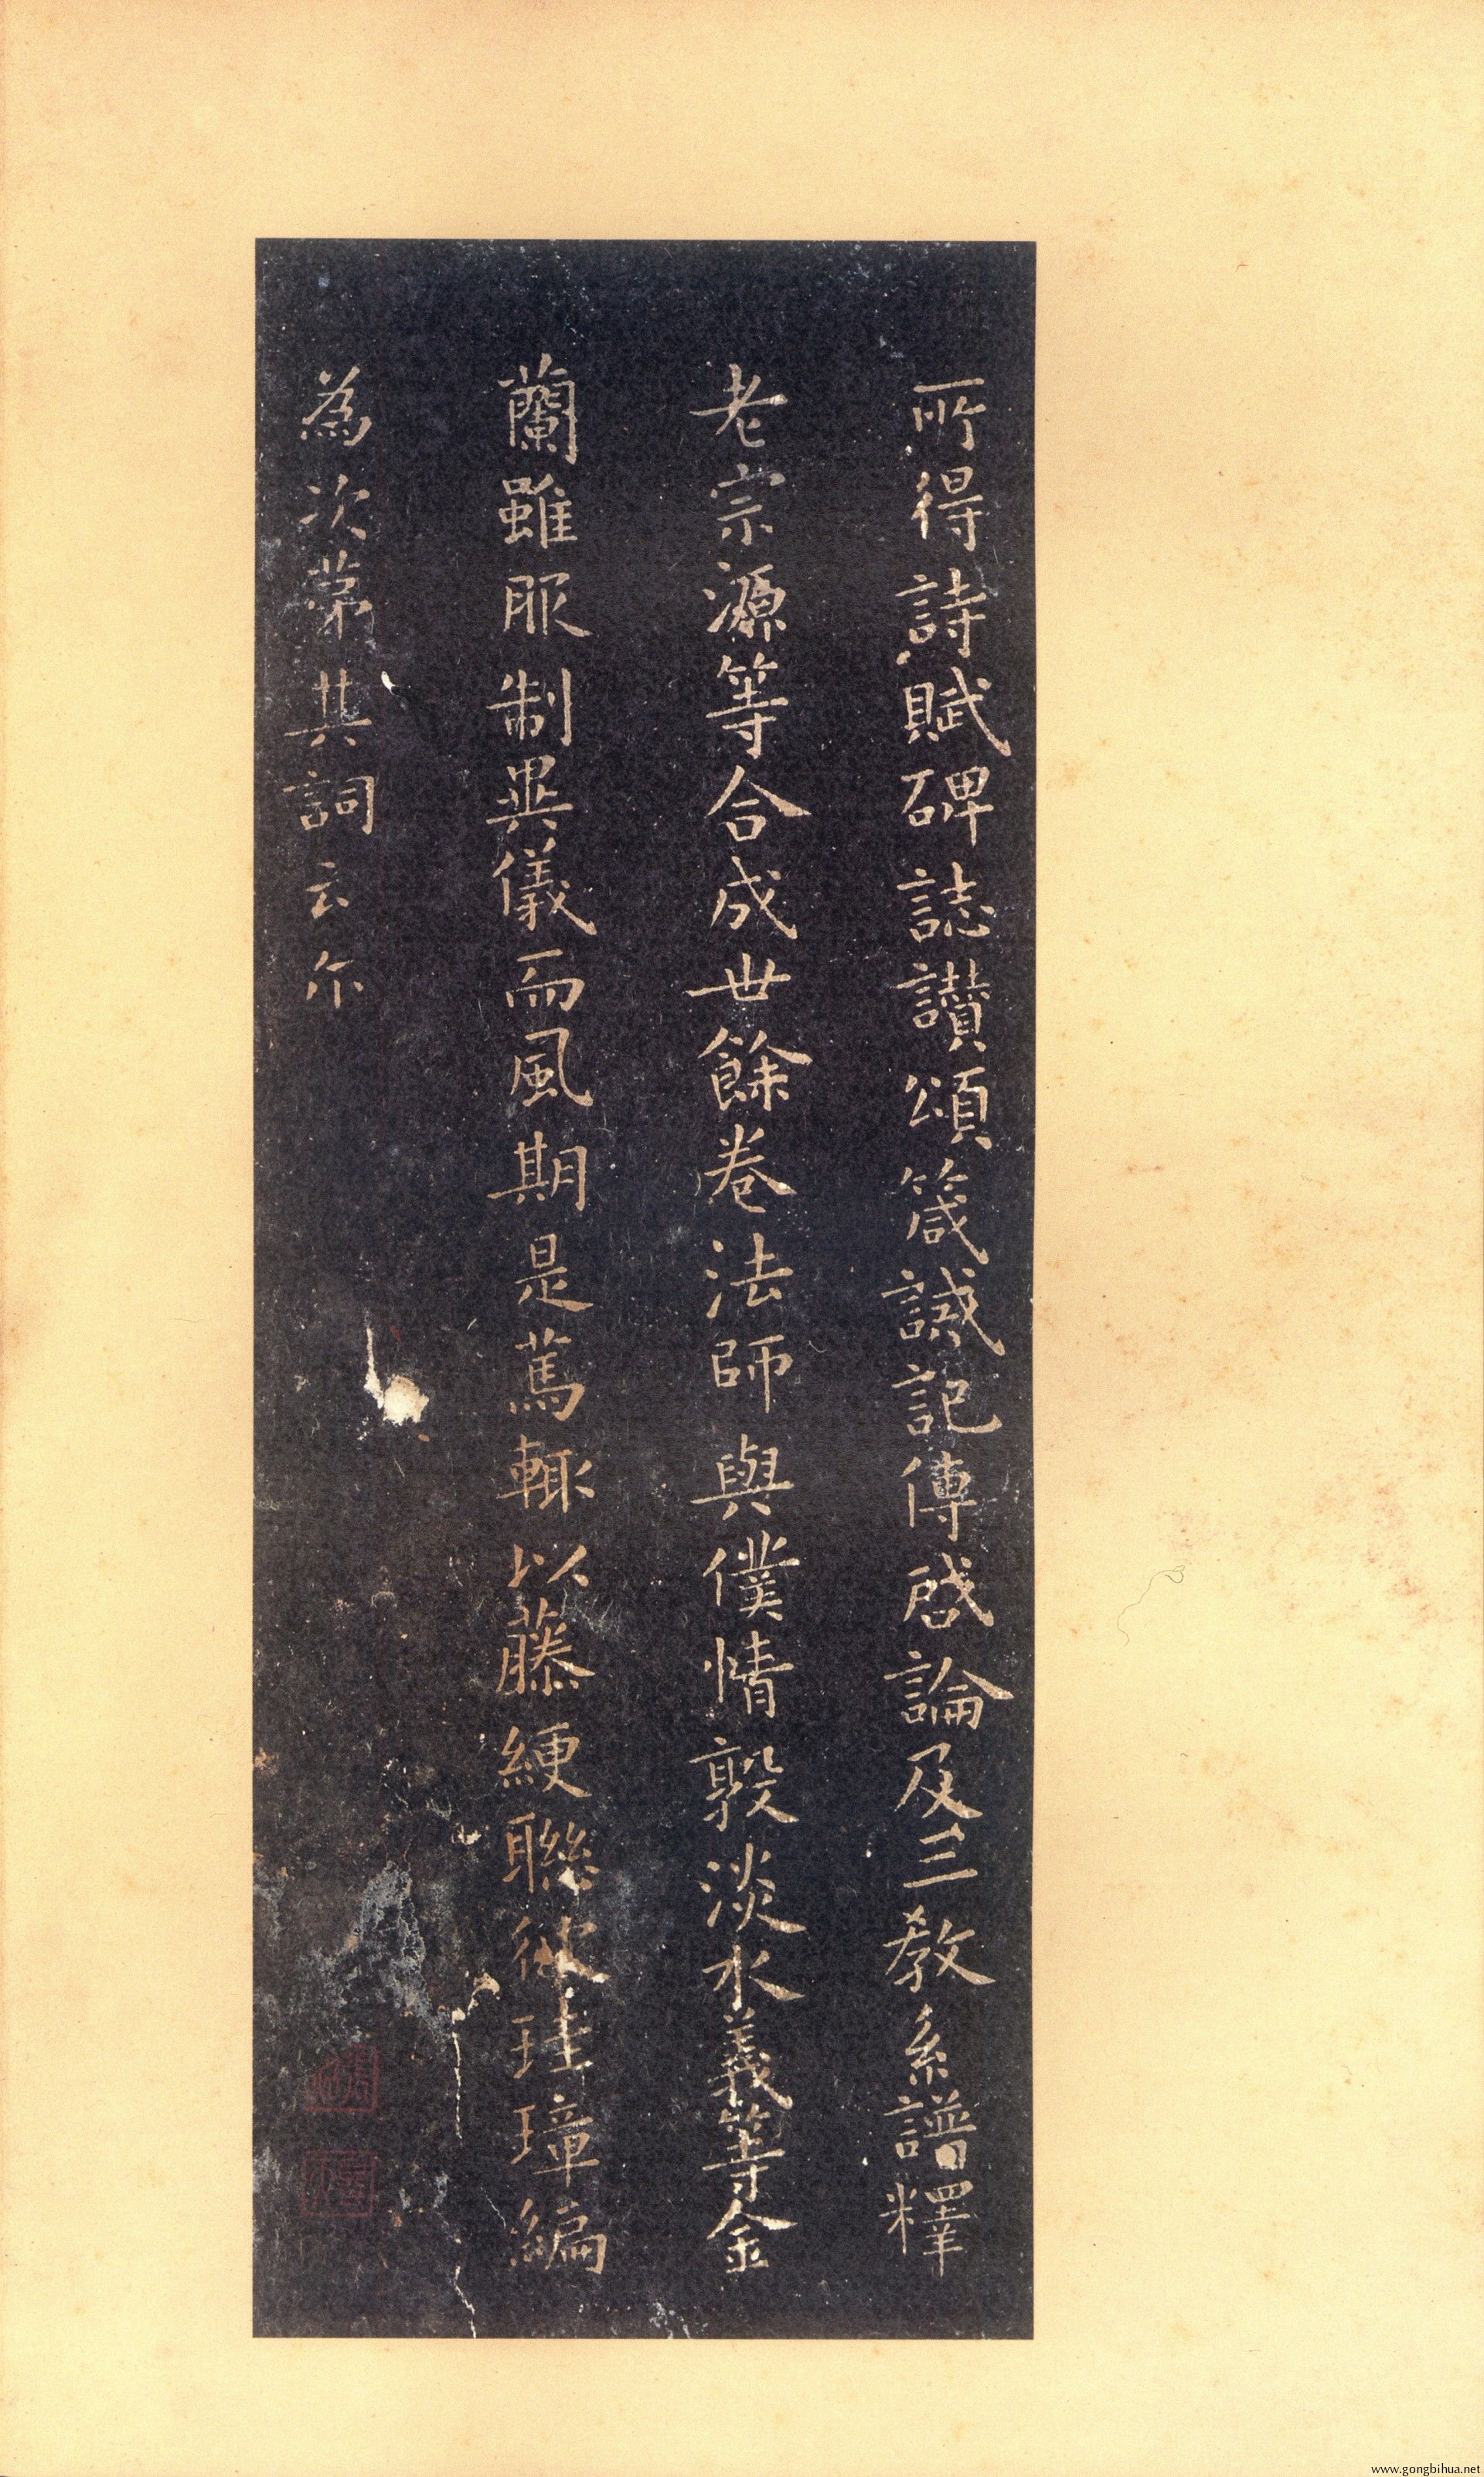 所得詩賦碑誌讚頌箴誡記傳啓論及三教系譜釋
老宗源等合成卅餘卷法師與僕情敦淡水義等金
蘭雖服制異儀而風期是篤輙以藤綆聯彼珪璋編
為次第其詞云尒
www.gongbihua.net